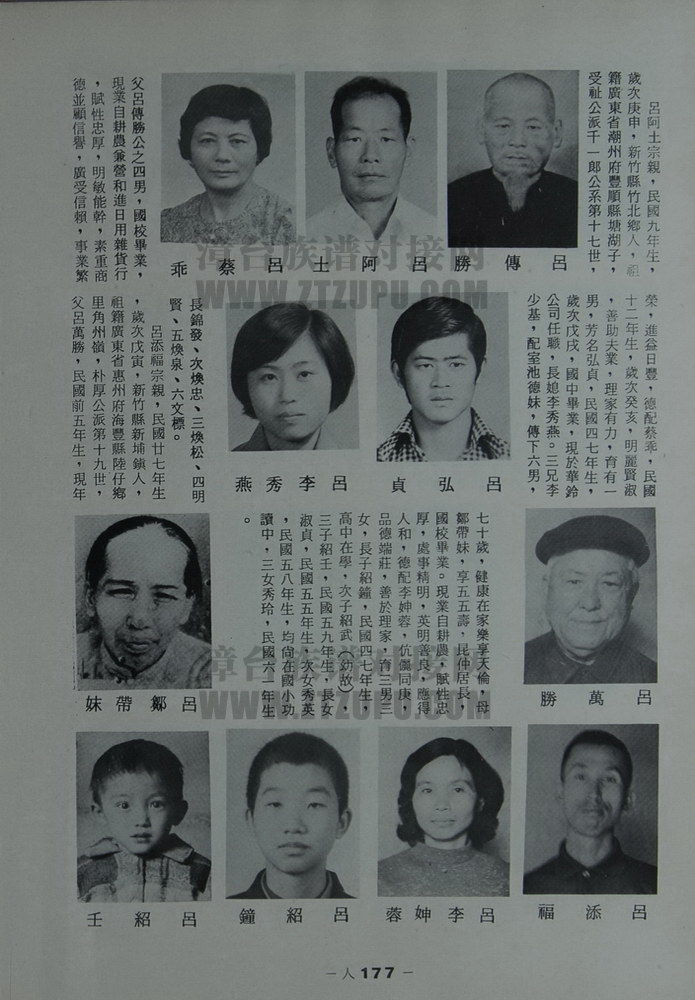 呂阿土宗親，民國九年生，
歲次庚申，新竹縣竹北鄉人，祖
籍廣東省潮州府豐順縣塘湖子，
受祉公派千一郎公系第十七世，
呂傳勝
呂阿土
呂蔡乖
父呂傳勝公之四男，國校畢業，
現業自耕農兼營和進日用雜貨行
，賦性忠厚，明敏能幹，素重商
德並顧信譽，廣受信賴，事業繁
榮，進益日豐，德配蔡乖，民國
十二年生，歲次癸亥，明麗賢淑
，善助夫業，理家有力，育有一
男，芳名弘貞，民國四七年生，
歲次戊戌，國中畢業，現於華鈴
公司任職，長媳李秀燕。三兄李
少基，配室池德妹，傳下六男，
呂弘貞
呂李秀燕
長錦發、次煥忠、三煥松、四明
賢、五煥泉、六文標。
呂添福宗親，民國廿七年生
，歲次戊寅，新竹縣新埔鎮人，
祖籍廣東省惠州府海豐縣陸仔鄉
里角州嶺，朴厚公派第十九世，
父呂萬勝，民國前五年生，現年
呂萬勝
七十歲，健康在家樂享天倫，母
鄒帶妹，享五五壽，昆仲居長，
國校畢業。現業自耕農，賦性忠
厚，處事精明，英明善良，應得
人和，德配李妽蓉，伉儷同庚，
品德端莊，善於理家，育三男三
女，長子紹鐘，民國四七年生，
高中在學，次子紹武（幼故），
三子紹壬，民國五九年生，長女
淑貞，民國五五年生，次女秀英
，民國五八年生，均尙在國小功
讀中，三女秀玲，民國六一年生
。
呂鄒帶妹
呂添福
呂李妽蓉
呂紹鐘
呂紹壬
－人177－
漳台族谱对接网
WWW.ZTZUPU.COM
漳台族谱对接网
WWW.ZTZUPU.COM